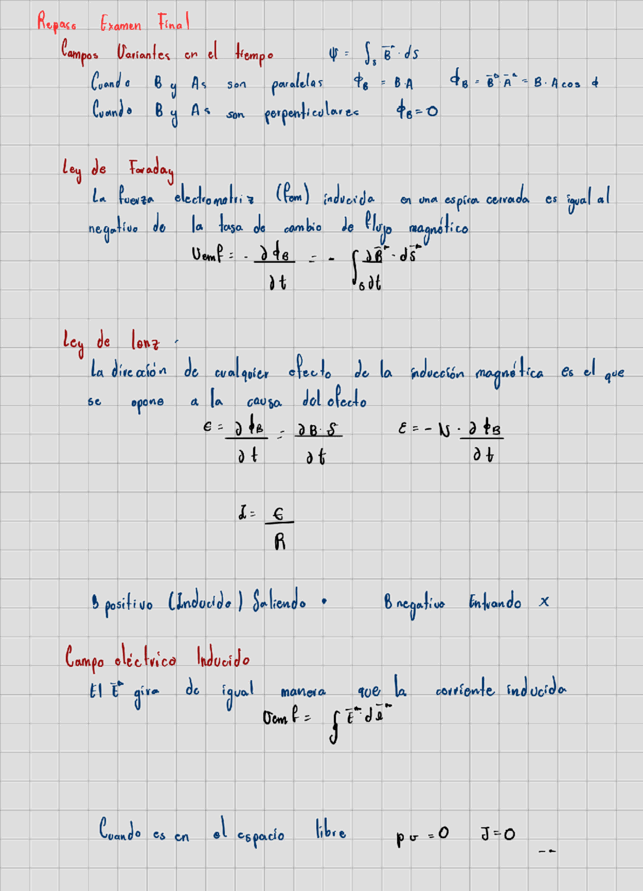 Repaso Examen Final
Campos Variantes en el tiempo ψ = ∫s B⃗ · ds
Cuando B y As son paralelas ϕB = B·A ϕB = B⃗·A⃗ = B·A cos ϕ
Cuando B y As son perpenticulares ϕB = 0
Ley de Faraday
La fuerza electromotriz (fem) inducida en una espira cerrada es igual al
negativo de la tasa de cambio de flujo magnético
Vemf = - ∂ϕB/∂t = - ∫s ∂B⃗/∂t · ds⃗
Ley de lenz
La dirección de cualquier efecto de la inducción magnética es el que
se opone a la causa del efecto
ε = ∂ϕB/∂t = ∂B·S/∂t ε = - N · ∂ϕB/∂t
I = ε/R
B positivo (Inducido) Saliendo • B negativo Entrando x
Campo eléctrico Inducido
El E⃗ gira de igual manera que la corriente inducida
Vemf = ∮ E⃗ · dl⃗
Cuando es en el espacio libre ρv = 0 J = 0 --